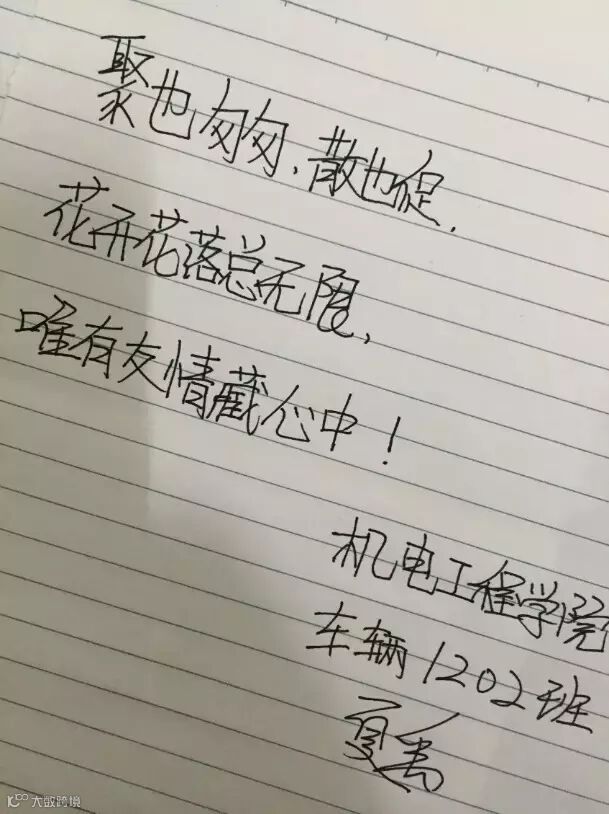 聚也匆匆,散也促,
花开花落总无限,
唯有友情藏心中!
机电工程学院
车辆1202班
大数跨境